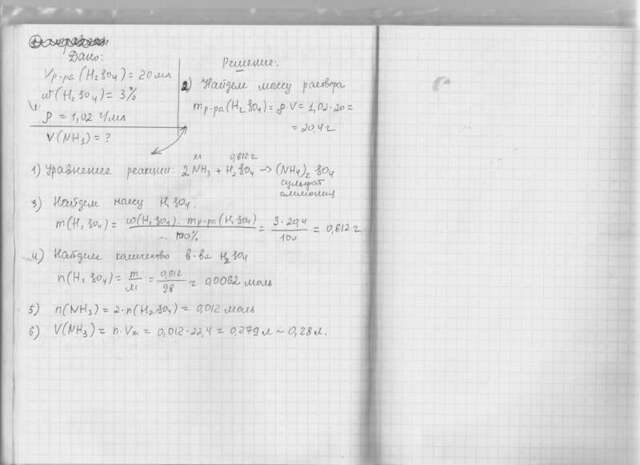 Дано:
Vр-ра(H₂SO₄) = 20 мл
ω(H₂SO₄) = 3%
ρ = 1,02 г/мл
V(NH₃) = ?
Решение:
2) Найдем массу раствора
mр-ра(H₂SO₄) = ρ·V = 1,02·20 =
= 20,4 г
xл 0,612 г
1) Уравнение реакции: 2NH₃ + H₂SO₄ → (NH₄)₂SO₄
сульфат
аммония
3) Найдем массу H₂SO₄.
m(H₂SO₄) = ω(H₂SO₄)·mр-ра(H₂SO₄) / 100% = 3·20,4 / 100 = 0,612 г
4) Найдем количество в-ва H₂SO₄
n(H₂SO₄) = m / M = 0,612 / 98 = 0,0062 моль
5) n(NH₃) = 2·n(H₂SO₄) = 0,012 моль
6) V(NH₃) = n·Vm = 0,012·22,4 = 0,279 л ~ 0,28 л.